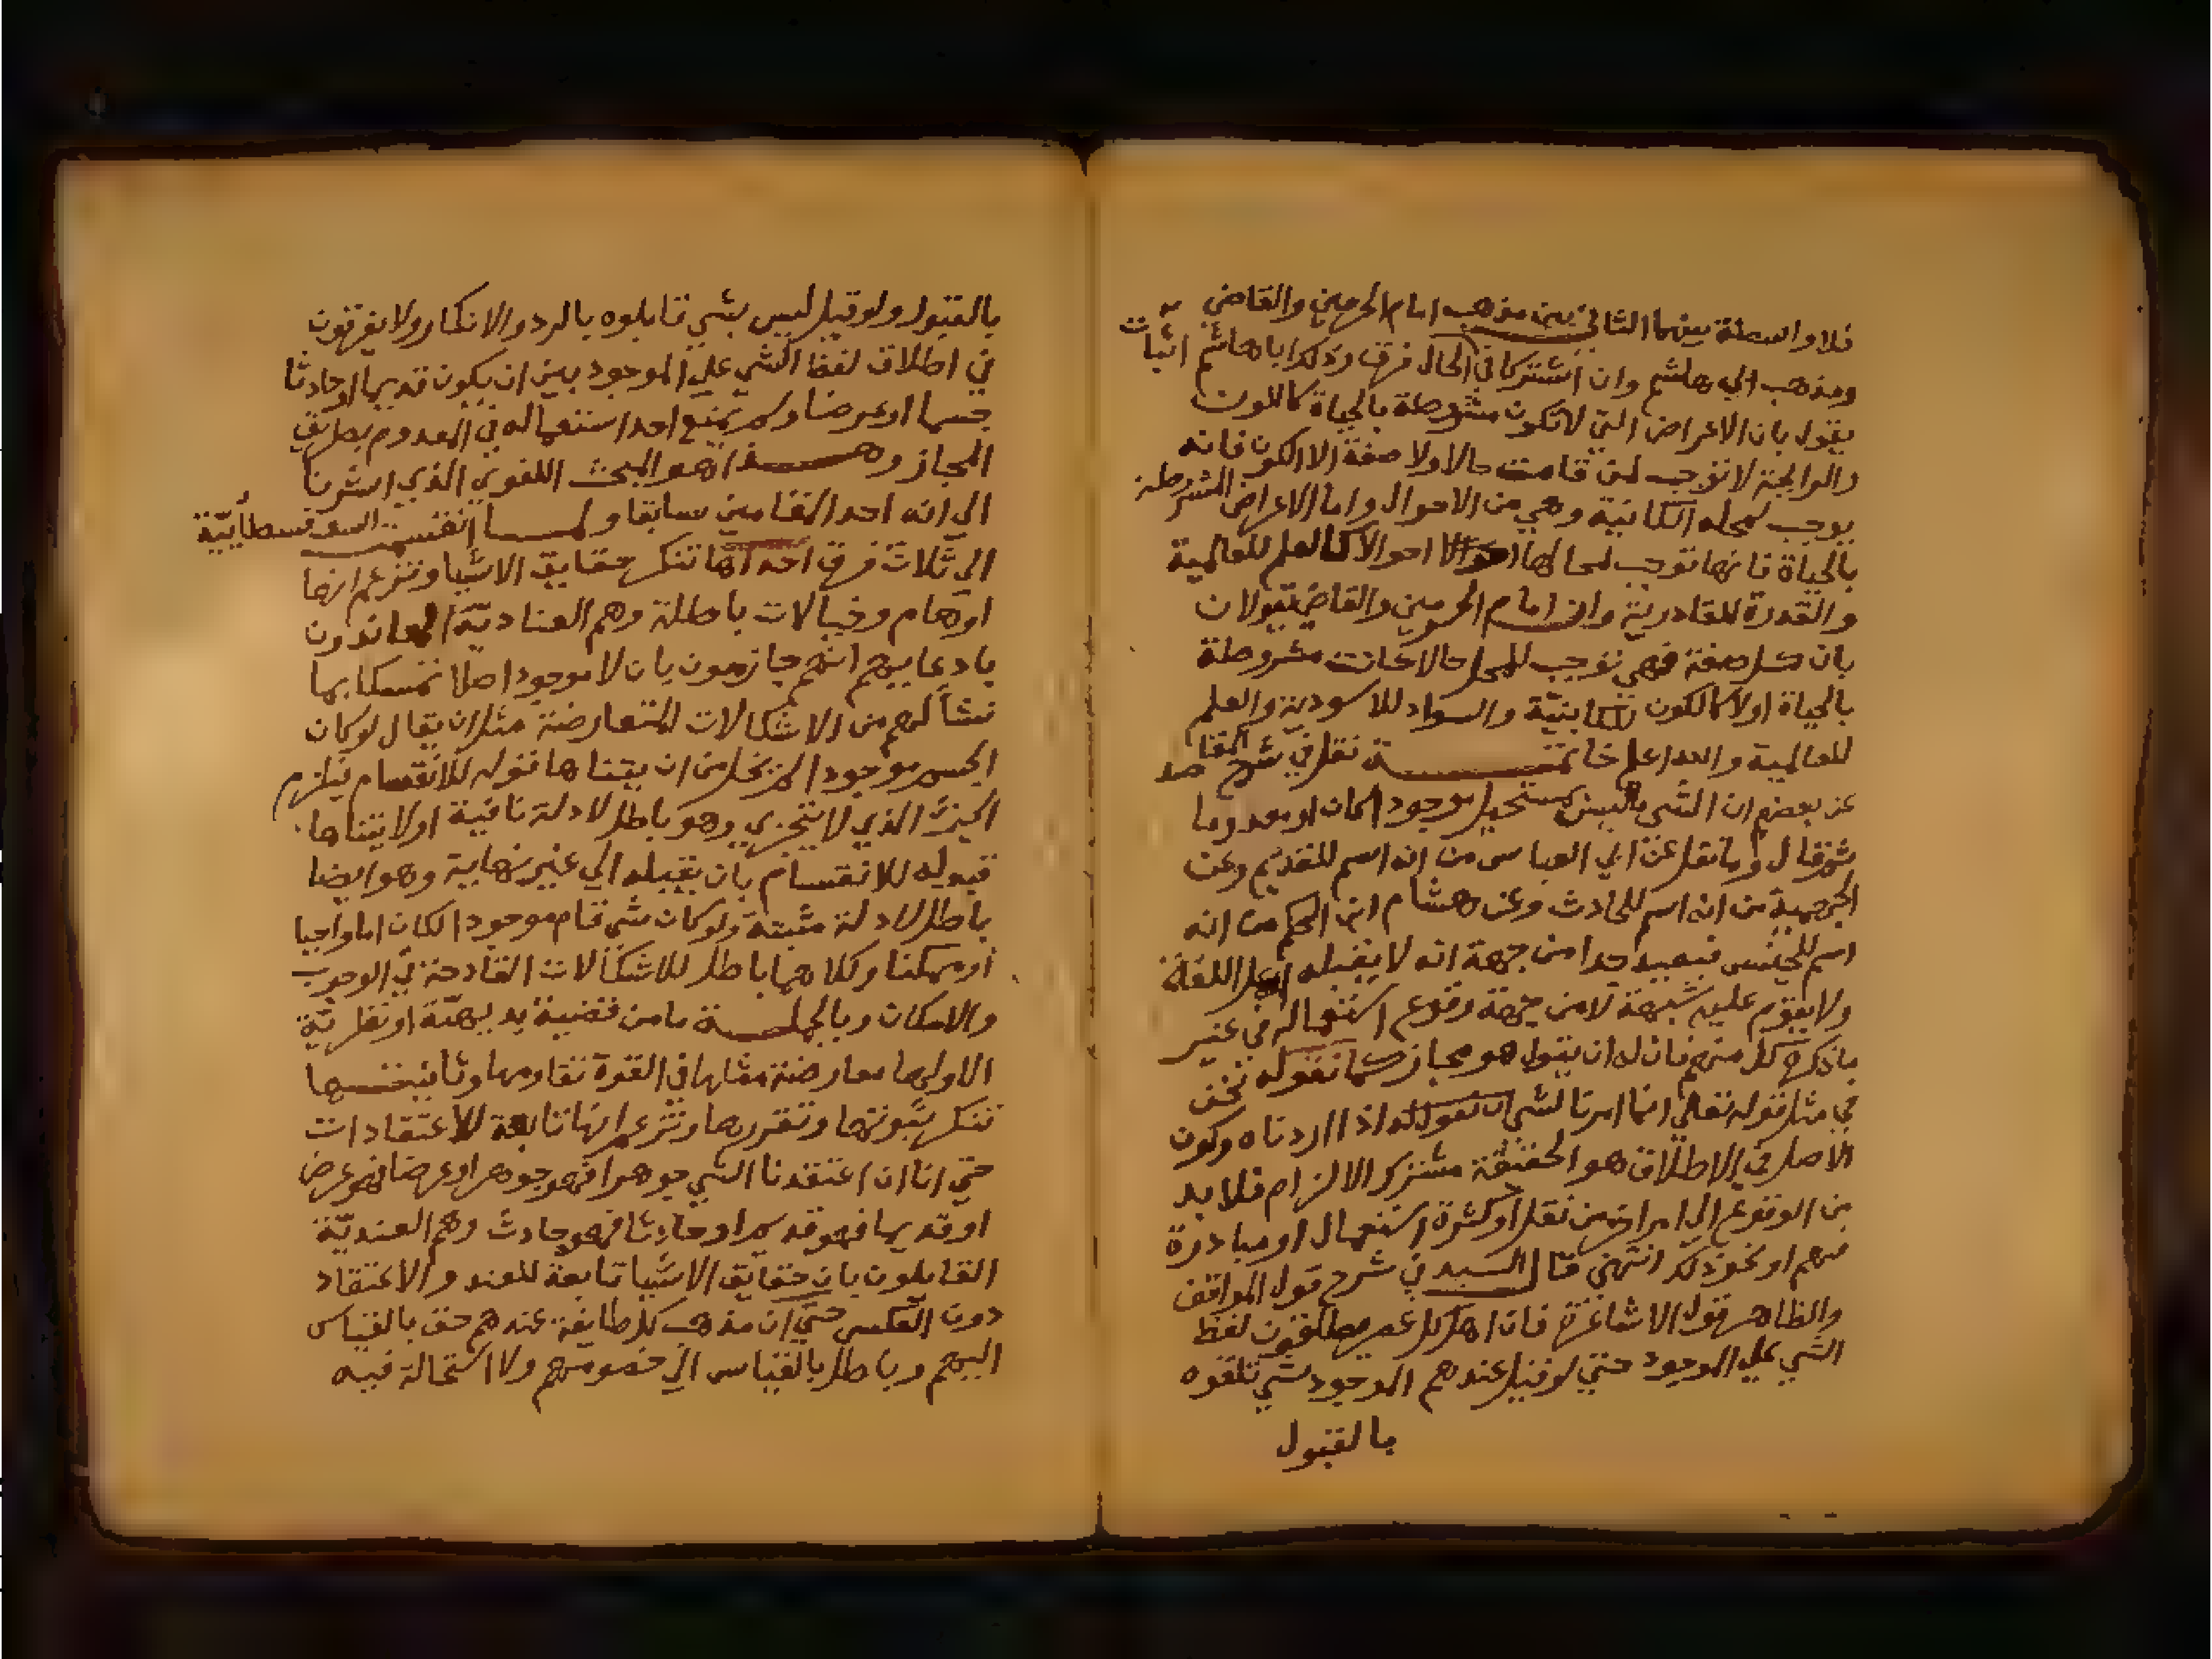 فلا واسطة بينهما الثاني بين مذهب امام الحرمين والقاضي
ومذهب ابي هاشم وان اشتركا في الحال فرقا وذلك ان اباهاشم اثبات
يقول بان الاعراض التي لا تكون مشروطة بالحياة كاللون
والرايحة لا توجب لمن قامت حالا ولا صفة الا الكون فانه
يوجب لمحله الكاينية وهي من الاحوال واما الاعراض المشروطة
بالحياة فانها توجب لمحالها احوالا كالعلم للعالمية
والقدرة للقادرية وان امام الحرمين والقاضي يقولان
بان كل صفة فهي توجب للمحل حالا كانت مشروطة
بالحياة اولا كالكون للكاينية والسواد للاسودية والعلم
للعالمية والله اعلم خاتمـــة نقل في شرح المقاصد
عن بعضهم ان الشي ما ليس بمستحيل موجودا كان او معدوما
ثم قال وما نقل عن ابي العباس من انه اسم للقديم وعن
الجهمية من انه اسم للحادث وعن هشام ابن الحكم من انه
اسم للجسم فبعيد جدا من جهة انه لا يقبله اهل اللغة
ولا يقوم عليه شبهة لا من جهة وقوع استعماله في غير
ما ذكره كل منهم فان له ان يقول هو مجاز كما نقوله نحن
في مثل قوله تعالي انما امرنا لشي ان نقول له اذا اردناه وكون
الاصل في الاطلاق هو الحقيقة مشترك الالزام فلا بد
من الوقوع الي امر اخر من نقل او كثرة استعمال او مبادرة
فهم او نحو ذلك انتهي قال السيد في شرح قول المواقف
والظاهر قول الاشاعرة فان اهل كل عصر يطلقون لفظ
الشي علي الموجود حتي لو قيل عندهم الموجود شي تلقوه
بالقبول
بالقبول ولو قيل ليس بشي قابلوه بالرد والانكار ولا يفرقون
في اطلاق لفظ الشي علي الموجود بين ان يكون قديما او حادثا
جسما او عرضا ولم يمنع احد استعماله في المعدوم بطريق
المجاز وهـــذا هو المبحث اللغوي الذي اشرنا
الي انه احد المقامين سابقا ولمـــا انقسمت السوفسطائيّة
الي ثلاث فرق احداها تنكر حقايق الاشيا وتزعم انها
اوهام وخيالات باطلة وهم العناديّة المعاندون
بادعايهم انهم جازمون بان لا موجود اصلا تمسكا بما
نشأ لهم من الاشكالات المتعارضة مثل ان يقال لو كان
الجسم موجودا لم يخل من ان يتناها قبوله للانقسام فيلزم
الجزء الذي لا يتجزي وهو باطل لادلة نافية او لا يتناها
قبوله للانقسام بان يقبله الي غير نهاية وهو ايضا
باطل لادلة مثبتة ولو كان شي قام موجودا لكان اما واجبا
او ممكنا وكلاهما باطل للاشكالات القادحة في الوجوب
والامكان وبالجملـــة ما من قضية بديهيّة او نظريّة
الا ولها معارضة مثلها في القوة تقاومها وثانيتـــها
تنكر ثبوتها وتقررها وتزعم انها تابعة للاعتقادات
حتي انا ان اعتقدنا الشي جوهرا فهو جوهر او عرضا فهو عرض
او قديما فهو قديم او حادثا فهو حادث وهم العنديّة
القايلون بان حقايق الاشيا تابعة للعند والاعتقاد
دون العكس حتي ان مذهب كل طايفة عندهم حق بالقياس
اليهم وباطل بالقياس الي خصومهم ولا استحالة فيه